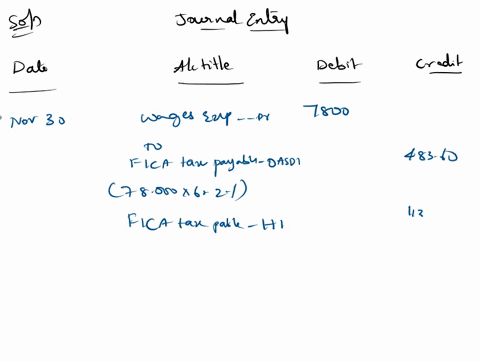 Sol)
Journal Entry
Date A/c title Debit Credit
Nov 30 Wages Exp --- Dr 7800
TO
FICA tax payable - OASDI 483.60
(78.000 x 6.2%)
FICA tax pable - HI 113